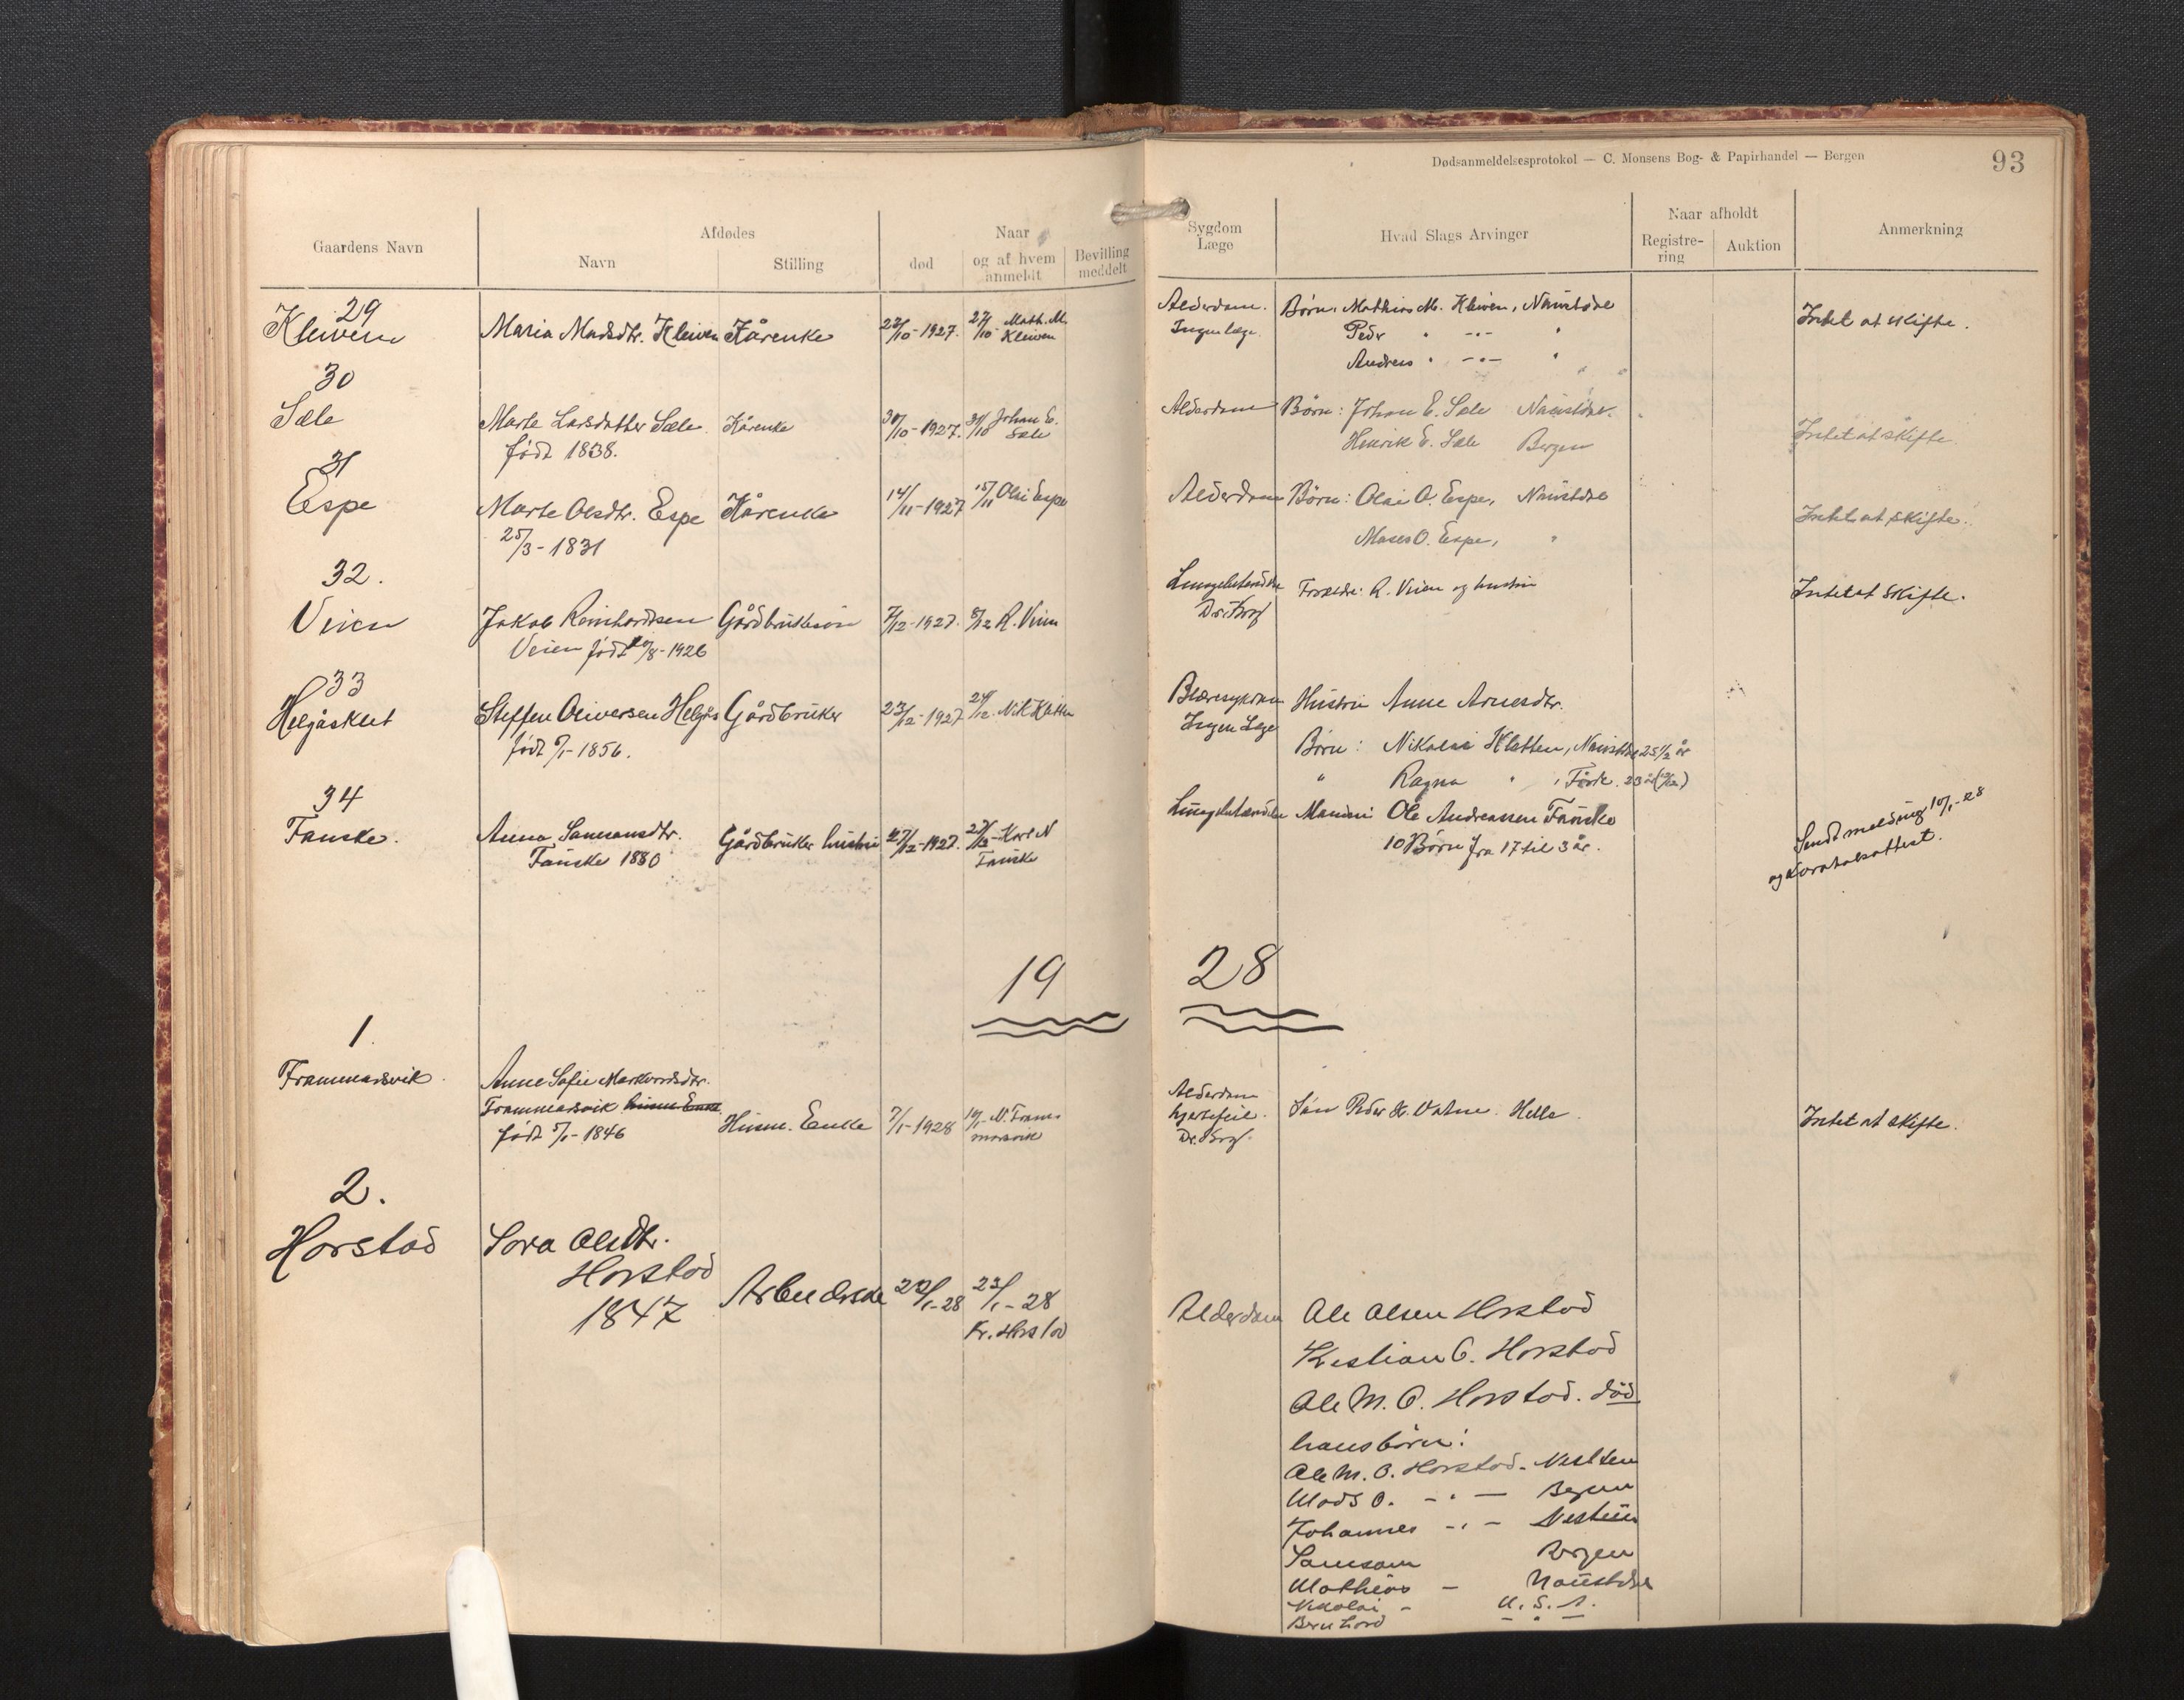 Dødsanmeldelsesprotokol — C. Monsens Bog- & Papirhandel — Bergen
93
Gaardens Navn
Afdødes
Navn
Stilling
Naar
død
og af hvem anmeldt
Bevilling meddelt
Sygdom Læge
Hvad Slags Arvinger
Naar afholdt
Registre-ring
Auktion
Anmerkning
29
Kleiven
Maria Madsdtr. Kleiven
Kårenke
22/10-1927.
27/10 Math. M. Kleiven
Alderdom.
Ingen læge
Børn: Mathias M. Kleiven, Naustdal
Peder " -"- "
Andreas " -"- "
Intet at skifte.
30
Sæle
Marte Larsdatter Sæle
født 1838.
Kårenke
30/10-1927.
31/10 Johan E. Sæle
Alderdom
Børn: Johan E. Sæle Naustdal.
Henrik E. Sæle Bergen
Intet at skifte.
31
Espe
Marte Olsdtr. Espe
25/3-1831
Kårenke
14/11-1927
15/11 Olai Espe
Alderdom
Børn: Olai O. Espe, Naustdal
Moses O. Espe, "
Intet at skifte.
32.
Veien
Jakob Reinhardtsen
Veien født /8-1926
Gårdbrukersøn
7/12-1927.
8/12 R. Veien
Lungebetændelse
Dr. Krog
Forældre: R. Veien og hustru
Intet at skifte.
33
Helgåsklet
Steffen Oliversen Helgås
født 6/1-1856.
Gårdbruker
23/12-1927
24/12 Nik Klatten
Blæresykdom
Ingen Læge
Hustru Anne Arnesdtr.
Børn: Nikolai Klatten, Naustdal 25 1/2 år
" Ragna " , Førde. 23 år
34
Fanske.
Anna Samsonsdtr.
Fanske 1880
Gårdbruker hustru
27/12-1927.
27/12-Karl N
Fanske
Lungebetændelse
Manden: Ole Andreassen Fanske
10 Børn fra 17 til 3 år.
Sendt melding 10/1-28
og
19 28
1
Frammarsvik
Anne Sofie Markvordsdtr.
Frammarsvik
født 5/1-1846
Husm. Enke
7/1-1928
10/1 N. Frammarsvik
Alderdom
hjertefeil.
Dr. Krog.
Søn Peder K. Vatne. Helle.
Intet at skifte.
2.
Horstad
Sara Olsdtr.
Horstad
1847
Arbeiderske
22/1-28
23/1-28
Kr. Horstad
Alderdom
Ole Olsen Horstad
Kristian O. Horstad
Ole M. O. Horstad. død
hans børn:
Ole M. O. Horstad - Vestten
Mads O. -"- Bergen
Johannes -"-
Samsom Bergen
Mathias - Naustdal
Nikolai - U. S. A.
Bernhard - " -